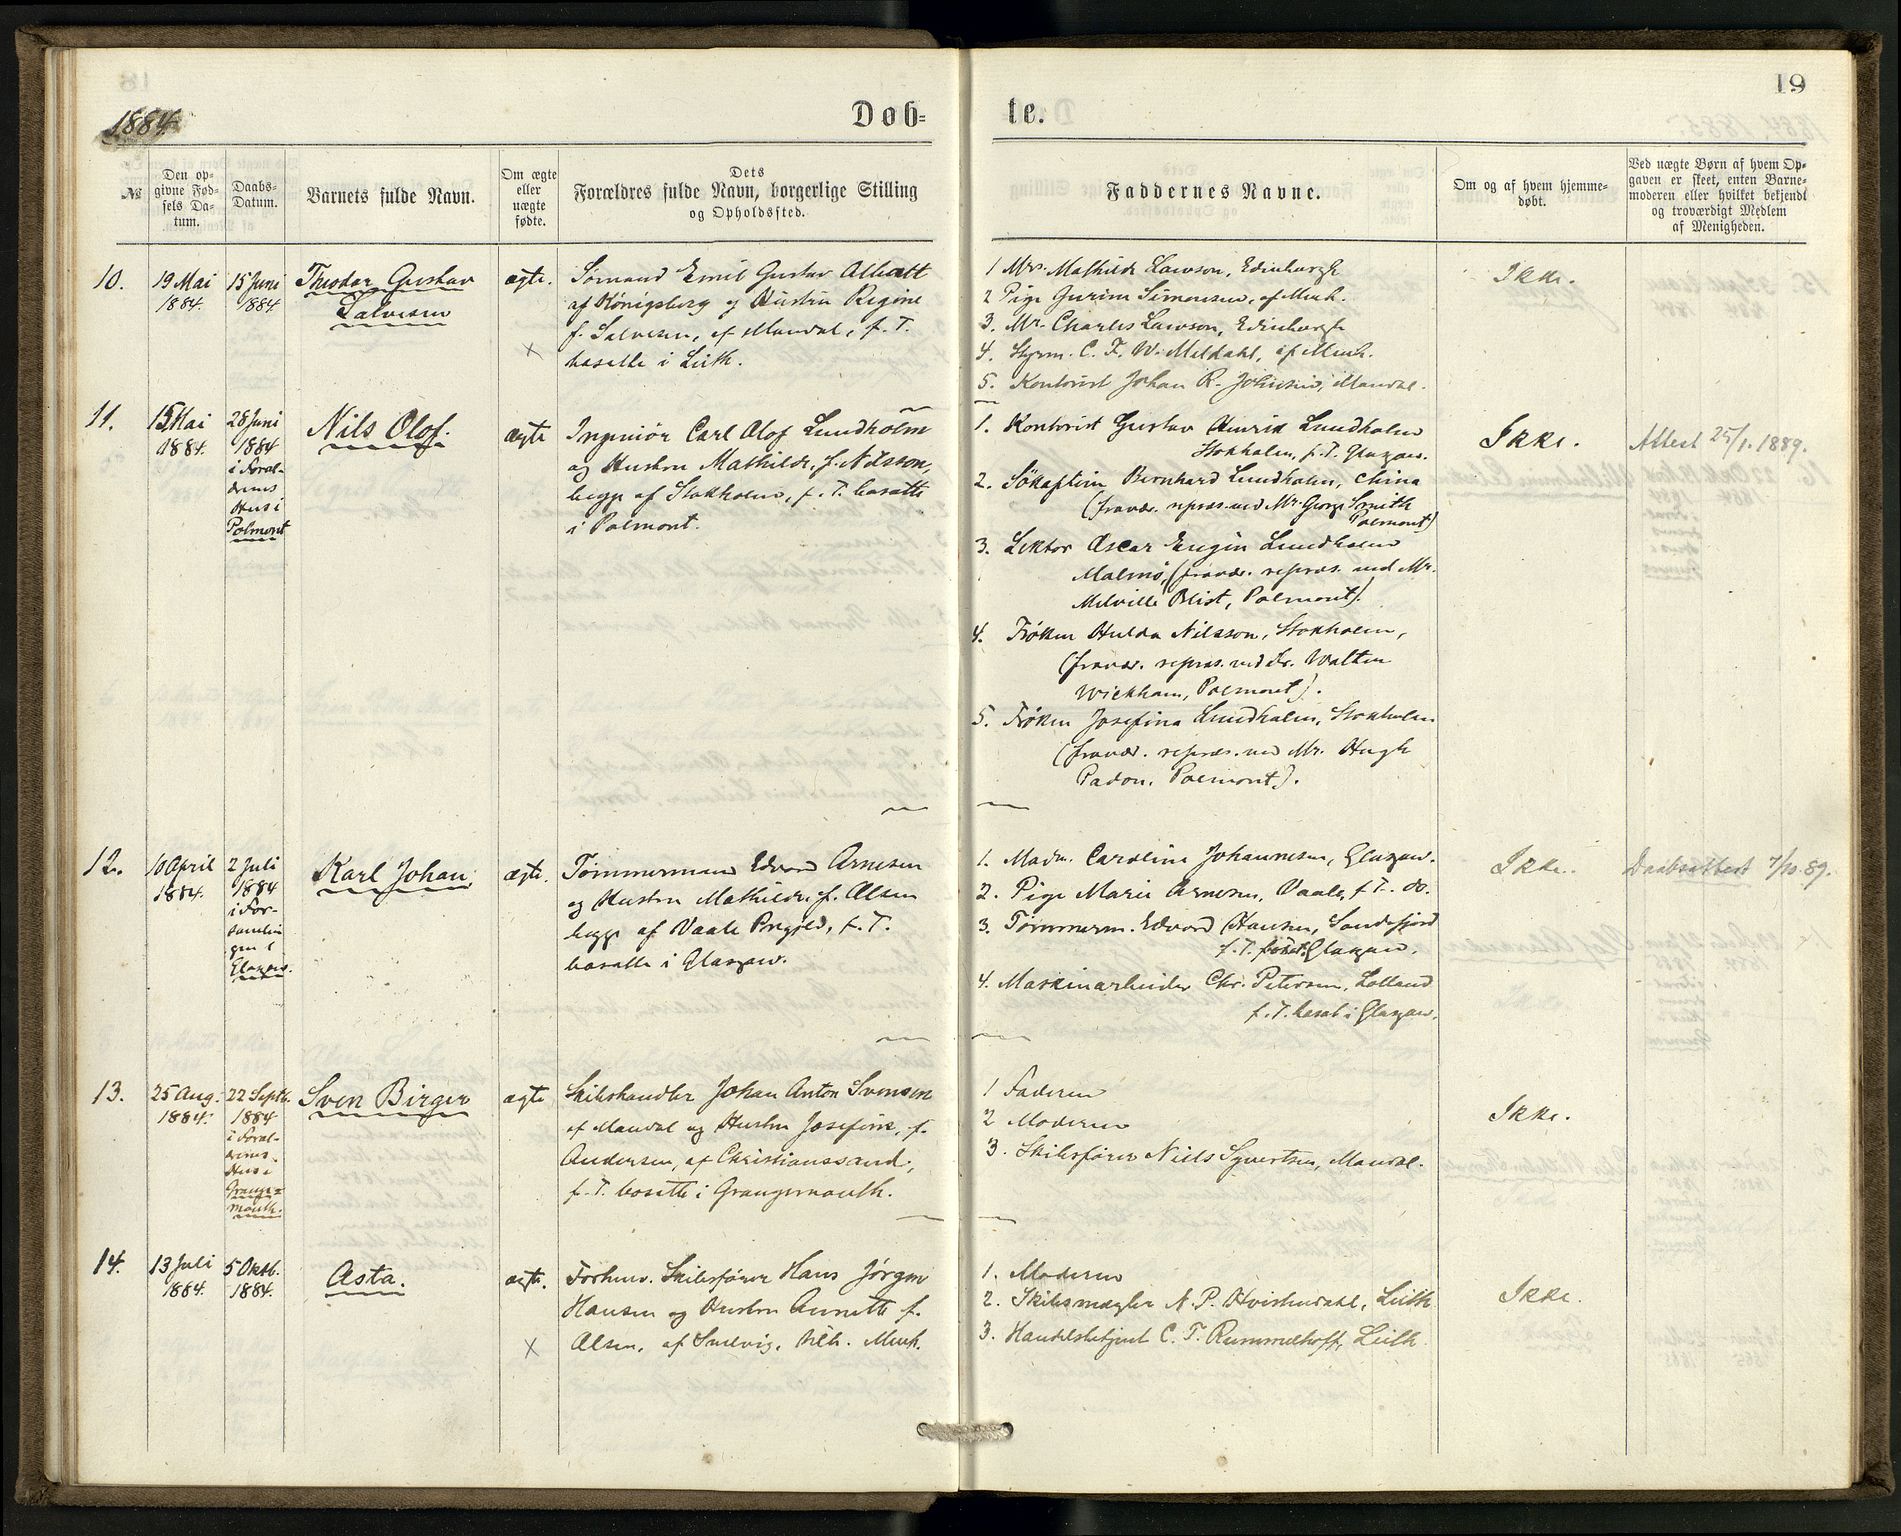 19
1884
Døb=
te.
№
Den op-
givne Fød-
sels Da-
tum.
Daabs-
Datum.
Barnets fulde Navn.
Om ægte
eller
uægte
fødte.
Dets
Forældres fulde Navn, borgerlige Stilling
og Opholdssted.
Faddernes Navne.
Om og af hvem hjemme-
døbt.
Ved uægte Børn af hvem Op-
gaven er skeet, enten Barne-
moderen eller hvilket bekjendt
og troværdigt Medlem
af Menigheden.
10.
19 Mai
1884.
15 Juni
1884
Theodor Gustav
Salvesen
ægte.
×
Sømand Emil Gustav Albratt
af Königsberg og Hustru Regine
f. Salvesen, af Mandal, f. T.
bosatte i Leith.
1 Mrs. Mathilde Lawson, Edinburgh
2 Pige Gurine Simonsen, af Menh.
3. Mr. Charles Lawson, Edinburgh
4. Styrm. C. F. W. Meldahl, af Menh.
5. Kontorist Johan R. Johnsen, Mandal.
Ikke.
11.
15 Mai
1884.
28 Juni
1884
i Foræl-
drenes
Hus i
Polmont
Nils Olof.
ægte
Ingeniør Carl Olof Lundholm
og Hustru Mathilde, f. Nilsson,
begge af Stokholm, f. T. bosatte
i Polmont.
1. Kontorist Gustav Henrik Lundholm
Stokholm, f. T. Glasgow.
2. Søkaptein Bernhard Lundholm, China
(fravær. repræs. ved Mr. George Smith
Polmont)
3. Lektor Oscar Eugén Lundholm
Malmö, (fravær. repræs. ved Mr.
Melville Blist, Polmont).
4. Frøken Hulda Nilsson, Stokholm,
(fravær. repræs. ved Dr. Walten
Wickham, Polmont).
5. Frøken Josefina Lundholm, Stokholm
(fravær. repræs. ved Mr. Hugh
Padon, Polmont).
Ikke.
Attest 25/1. 1889.
12.
10 April
1884.
2 Juli
1884
i For-
samlin
gen i
Glasgow.
Karl Johan
ægte.
Tømmermand Edvard Arnesen
og Hustru Mathilde, f. Olsen
begge af Vaale Prgjeld, f. T.
bosatte i Glasgow.
1. Madm. Caroline Johannesen, Glasgow.
2. Pige Marie Arnesen, Vaale, f. T. do.
3. Tømmerm. Edvard Hansen, Sandefjord
f. T. Glasgow.
4. Maskinarbeider Chr. Petersen, Lolland
f. T. bosat i Glasgow.
Ikke.
Daabsattest 7/10. 89.
13.
25 Aug.
1884.
22 Septb.
1884
i Foræl-
drenes
Hus i
Grange=
mouth.
Sven Birger
ægte
Skibshandler Johan Anton Svensen
af Mandal og Hustru Josefine, f.
Andersen, af Christianssand,
f. T. bosatte i Grangemouth.
1 Faderen
2 Moderen
3. Skibsfører Niels Syvertsen, Mandal.
Ikke.
14.
13 Juli
1884.
5 Oktb.
1884.
Asta.
ægte.
×
Forhenv. Skibsfører Hans Jörgen
Hansen og Hustru Annette f.
Olsen, af Snelvig, tilh. Menh.
1. Moderen
2. Skibsmægler N. P. Hvistendahl, Leith
3. Handelsbetjent C. T. Rummelhoff, Leith
Ikke.